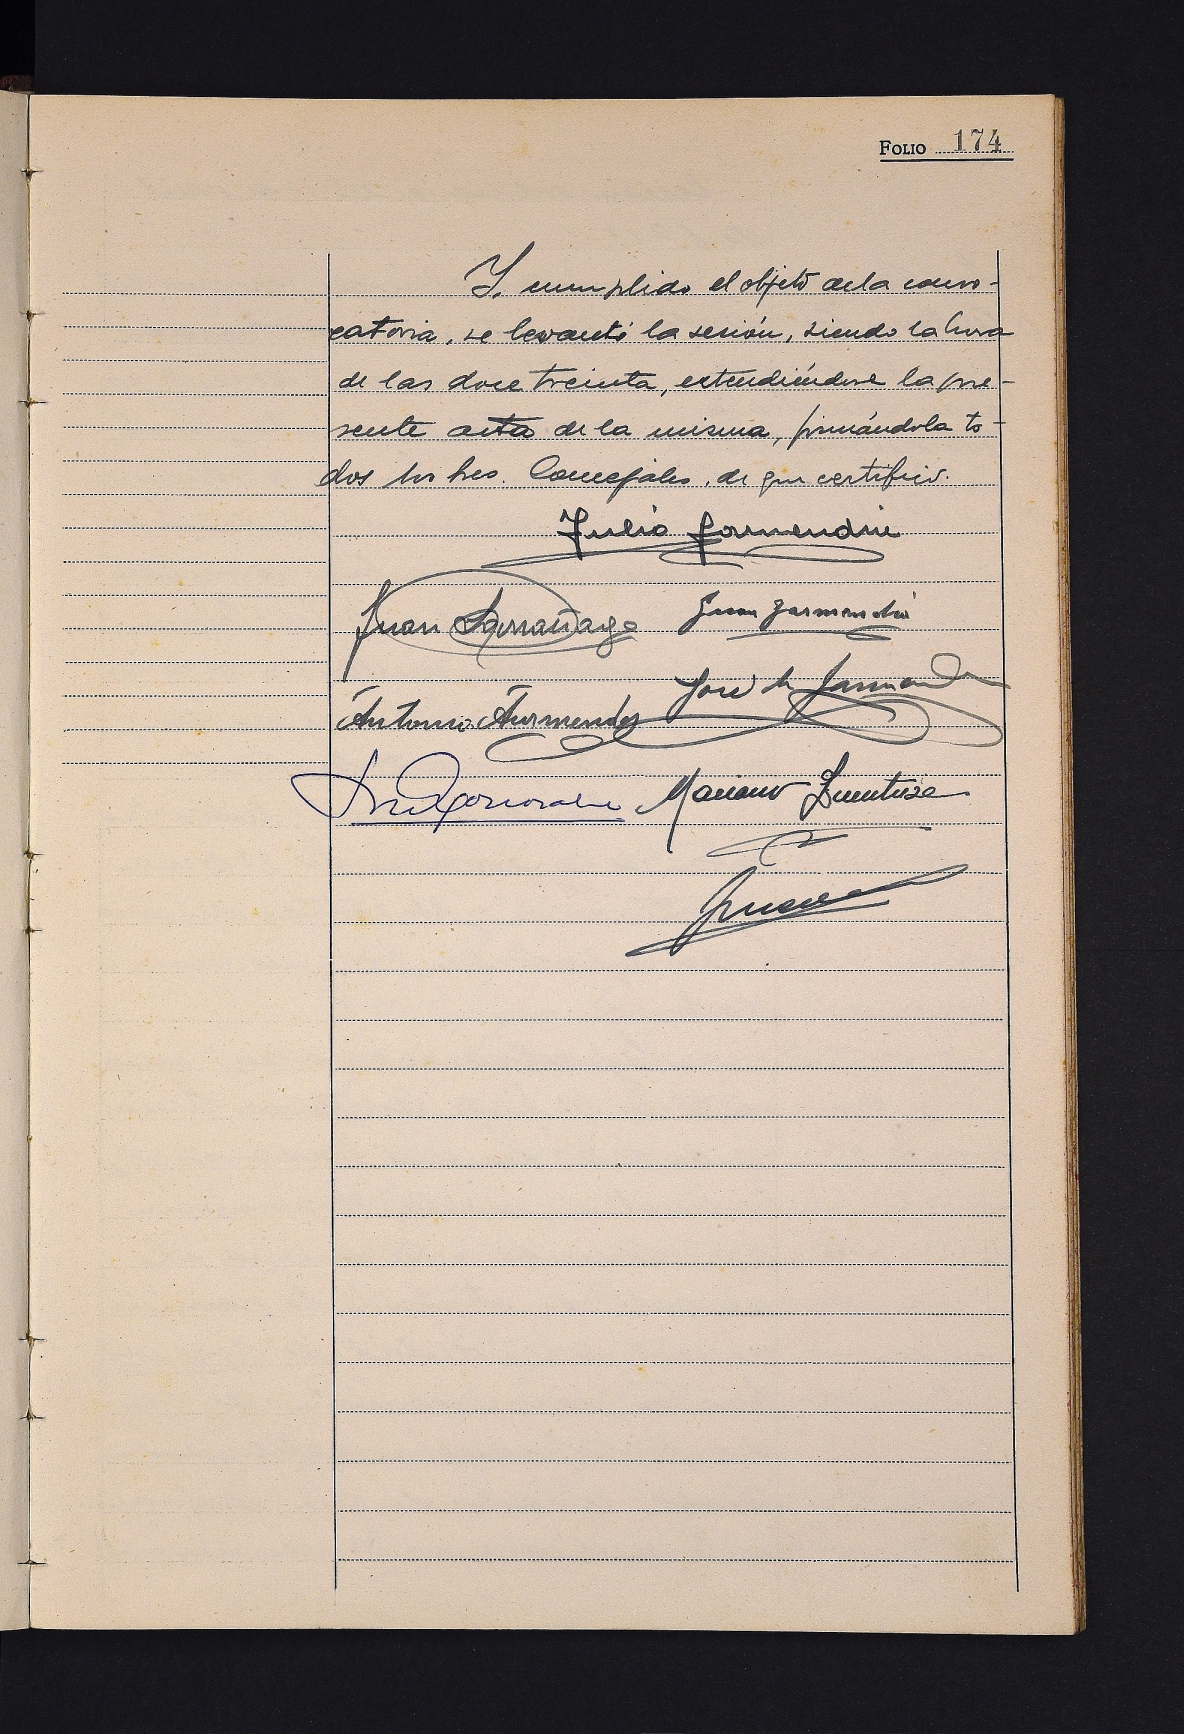 FOLIO 174
Y, cumplido el objeto de la convo-
catoria, se levantó la sesión, siendo la hora
de las doce treinta, extendiéndose la pre-
sente acta de la misma, firmándola to-
dos los Sres. Concejales, de que certifico.
Julio Garmendia
Juan Larrañaga Juan Garmendia
José M. Garmendia
Antonio Armendos
Mariano